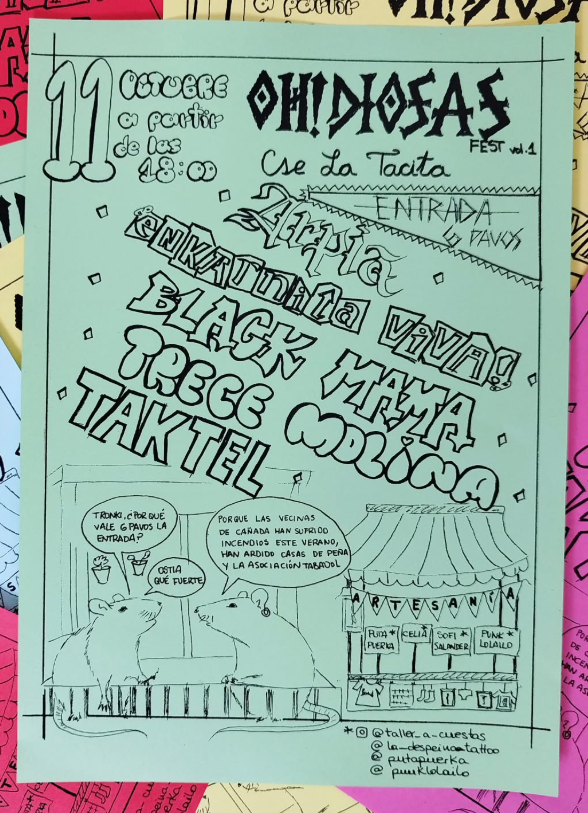 11 OCTUBRE
a partir
de las
18:00
OH!DIOSAS
FEST vol.1
Cse La Tacita
ENTRADA
6 PAVOS
Zirpia
ENKARNITA VIVA!!
BLACK MAMA
TRECE MOLINA
TAKTEL
TRONKI, ¿POR QUÉ
VALE 6 PAVOS LA
ENTRADA?
OSTIA
QUÉ FUERTE
PORQUE LAS VECINAS
DE CAÑADA HAN SUFRIDO
INCENDIOS ESTE VERANO,
HAN ARDIDO CASAS DE PEÑA
Y LA ASOCIACIÓN TABADOL
ARTESANÍA
PUTA*
PUERKA
CELIA*
SOFI*
SALANDER
PUNK*
LOLAILO
* @taller_a_cuestas
@la_despeinaotattoo
@ putapuerka
@ punklolailo